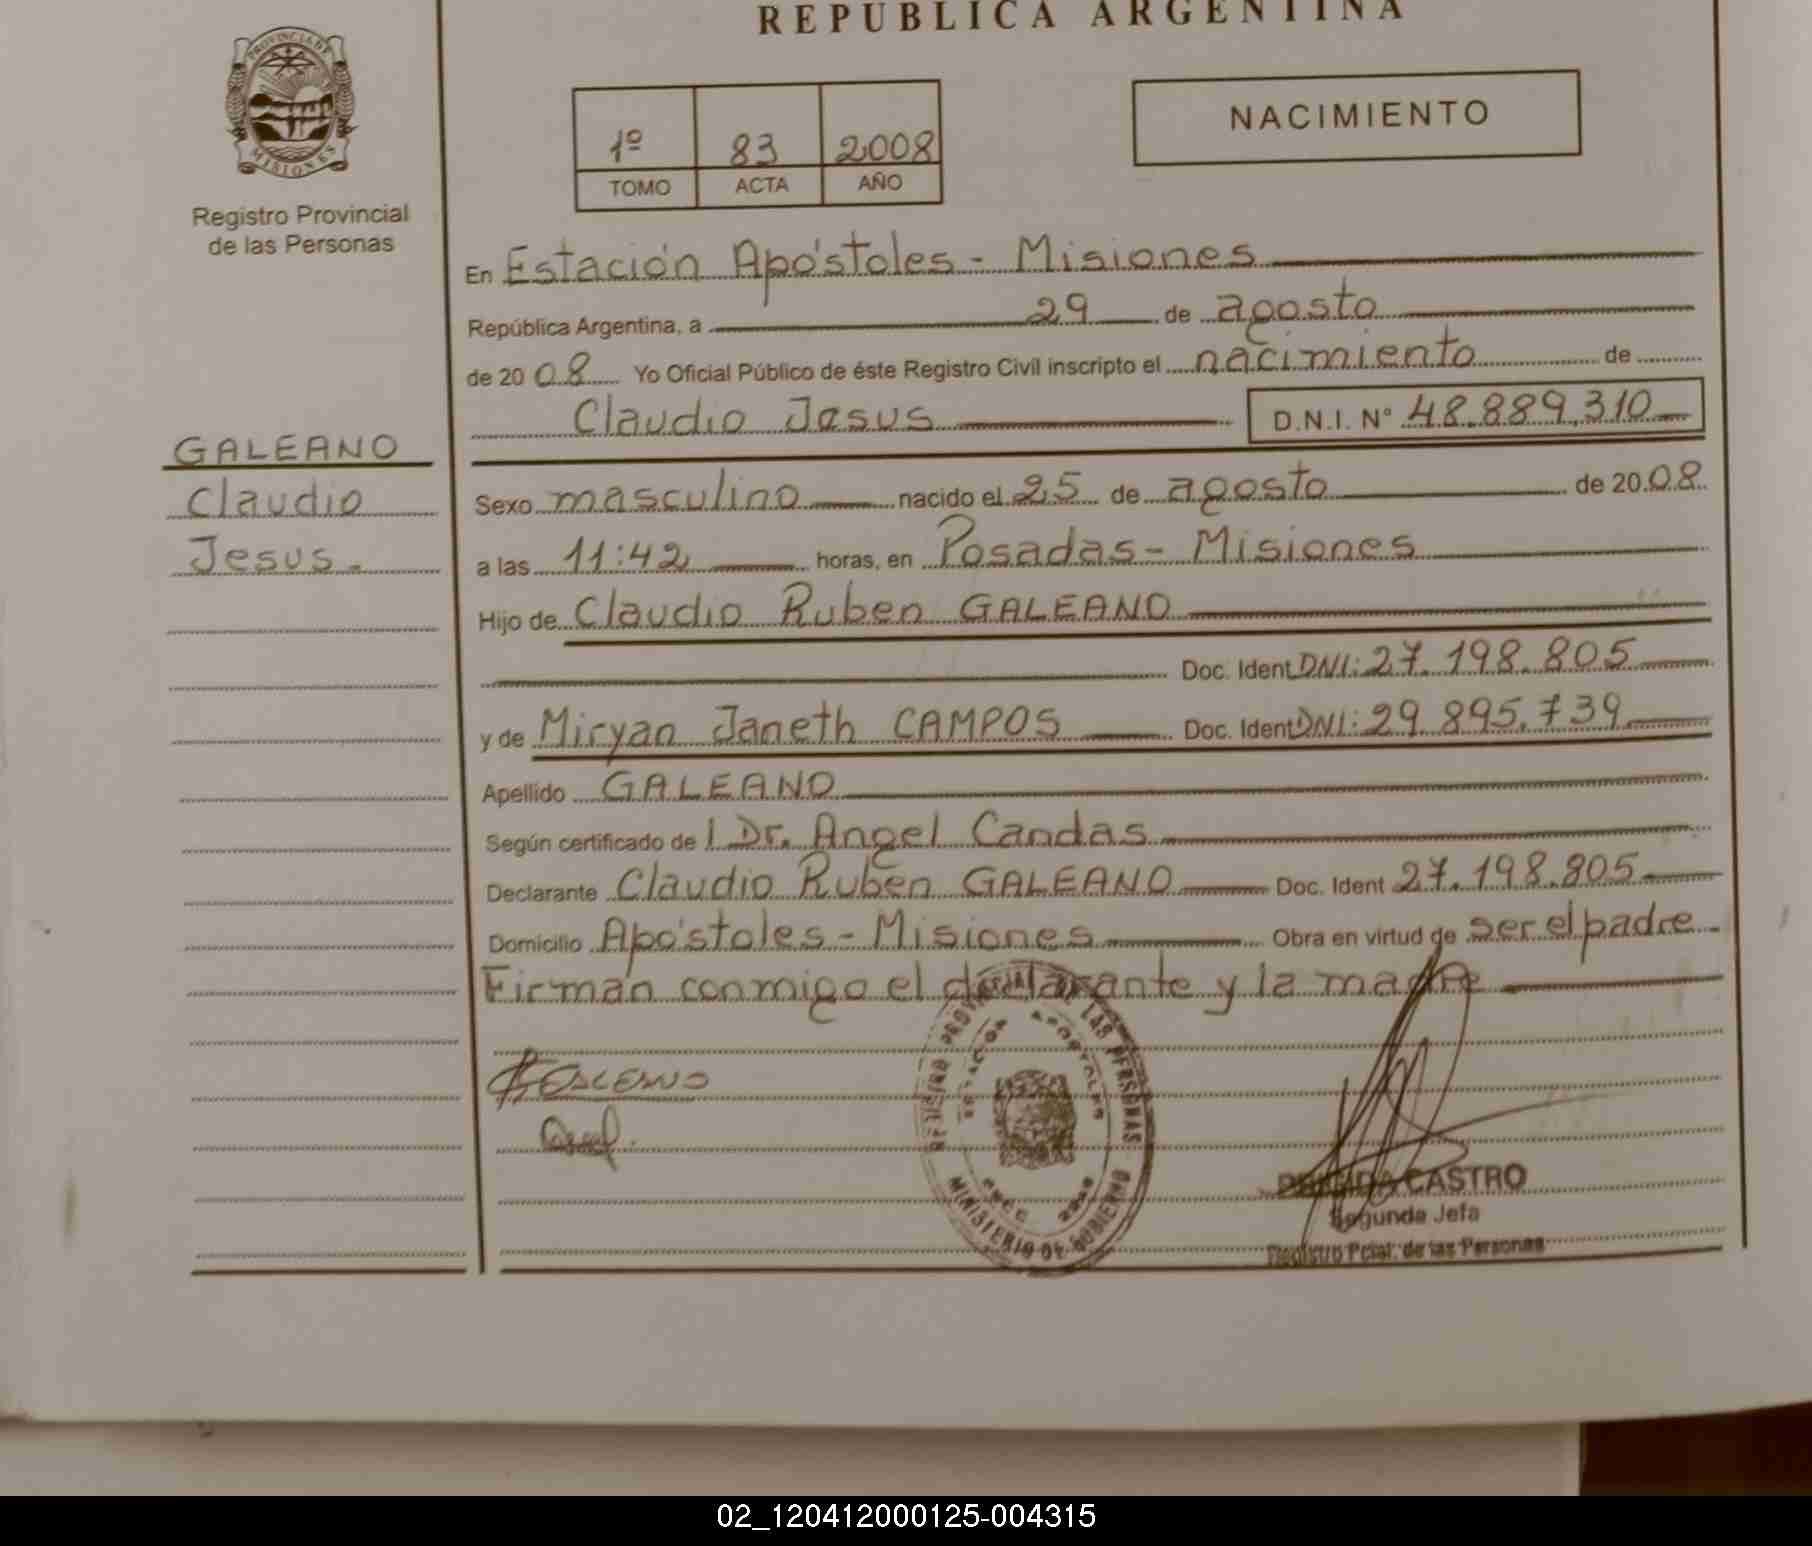 REPUBLICA ARGENTINA
PROVINCIA DE
MISIONES
Registro Provincial
de las Personas
1º 83 2008
TOMO ACTA AÑO
NACIMIENTO
En Estación Apóstoles - Misiones
República Argentina, a 29 de agosto
de 20 08 Yo Oficial Público de éste Registro Civil inscripto el nacimiento de
Claudio Jesus D.N.I. N° 48.889.310
GALEANO
Claudio
Jesus.-
Sexo masculino nacido el 25 de agosto de 20 08
a las 11:42 horas, en Posadas - Misiones
Hijo de Claudio Ruben GALEANO
Doc. Ident DNI: 27.198.805
y de Miryan Janeth CAMPOS Doc. Ident DNI: 29.895.739
Apellido GALEANO
Según certificado de l Dr. Angel Candas
Declarante Claudio Ruben GALEANO Doc. Ident 27.198.805
Domicilio Apóstoles - Misiones Obra en virtud de ser el padre.-
Firman conmigo el declarante y la madre
REGISTRO PROV LAS PERSONAS
ESTACION APOSTOLES
MINISTERIO DE GOBIERNO
CASTRO
Segunda Jefa
Registro Pcial. de las Personas
02_120412000125-004315